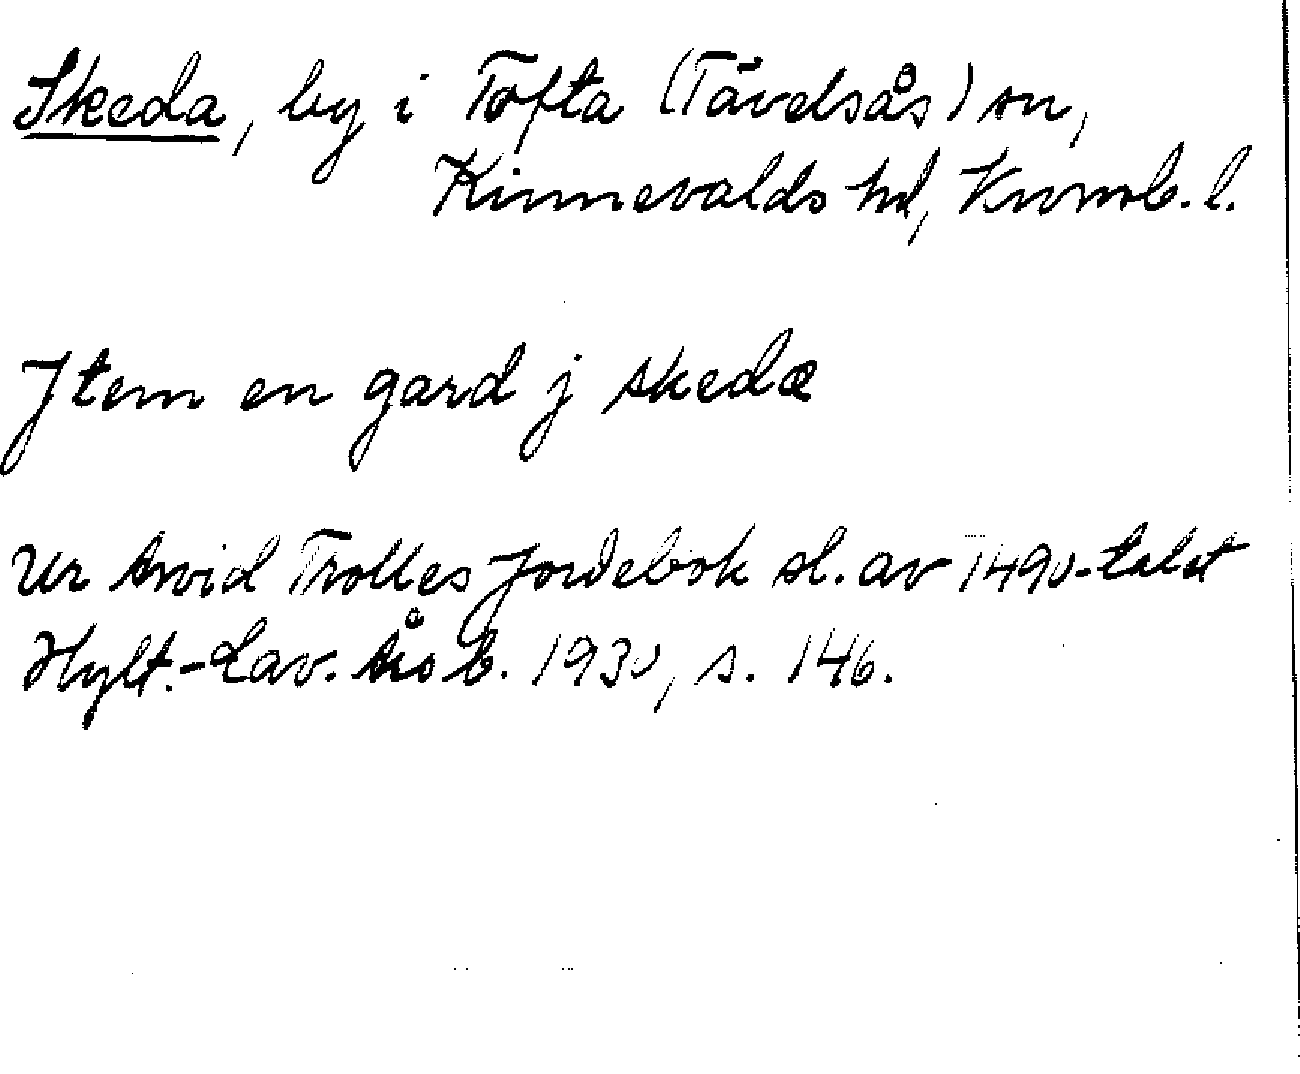 Skeda, by i Tofta (Tävelsås) sn,
Kinnevalds hd, Kronob. l.
Jtem en gard j skedæ
Ur Arvid Trolles Jordebok sl. av 1490-talet
Hylt.-Cav. Årsb. 1930, s. 146.